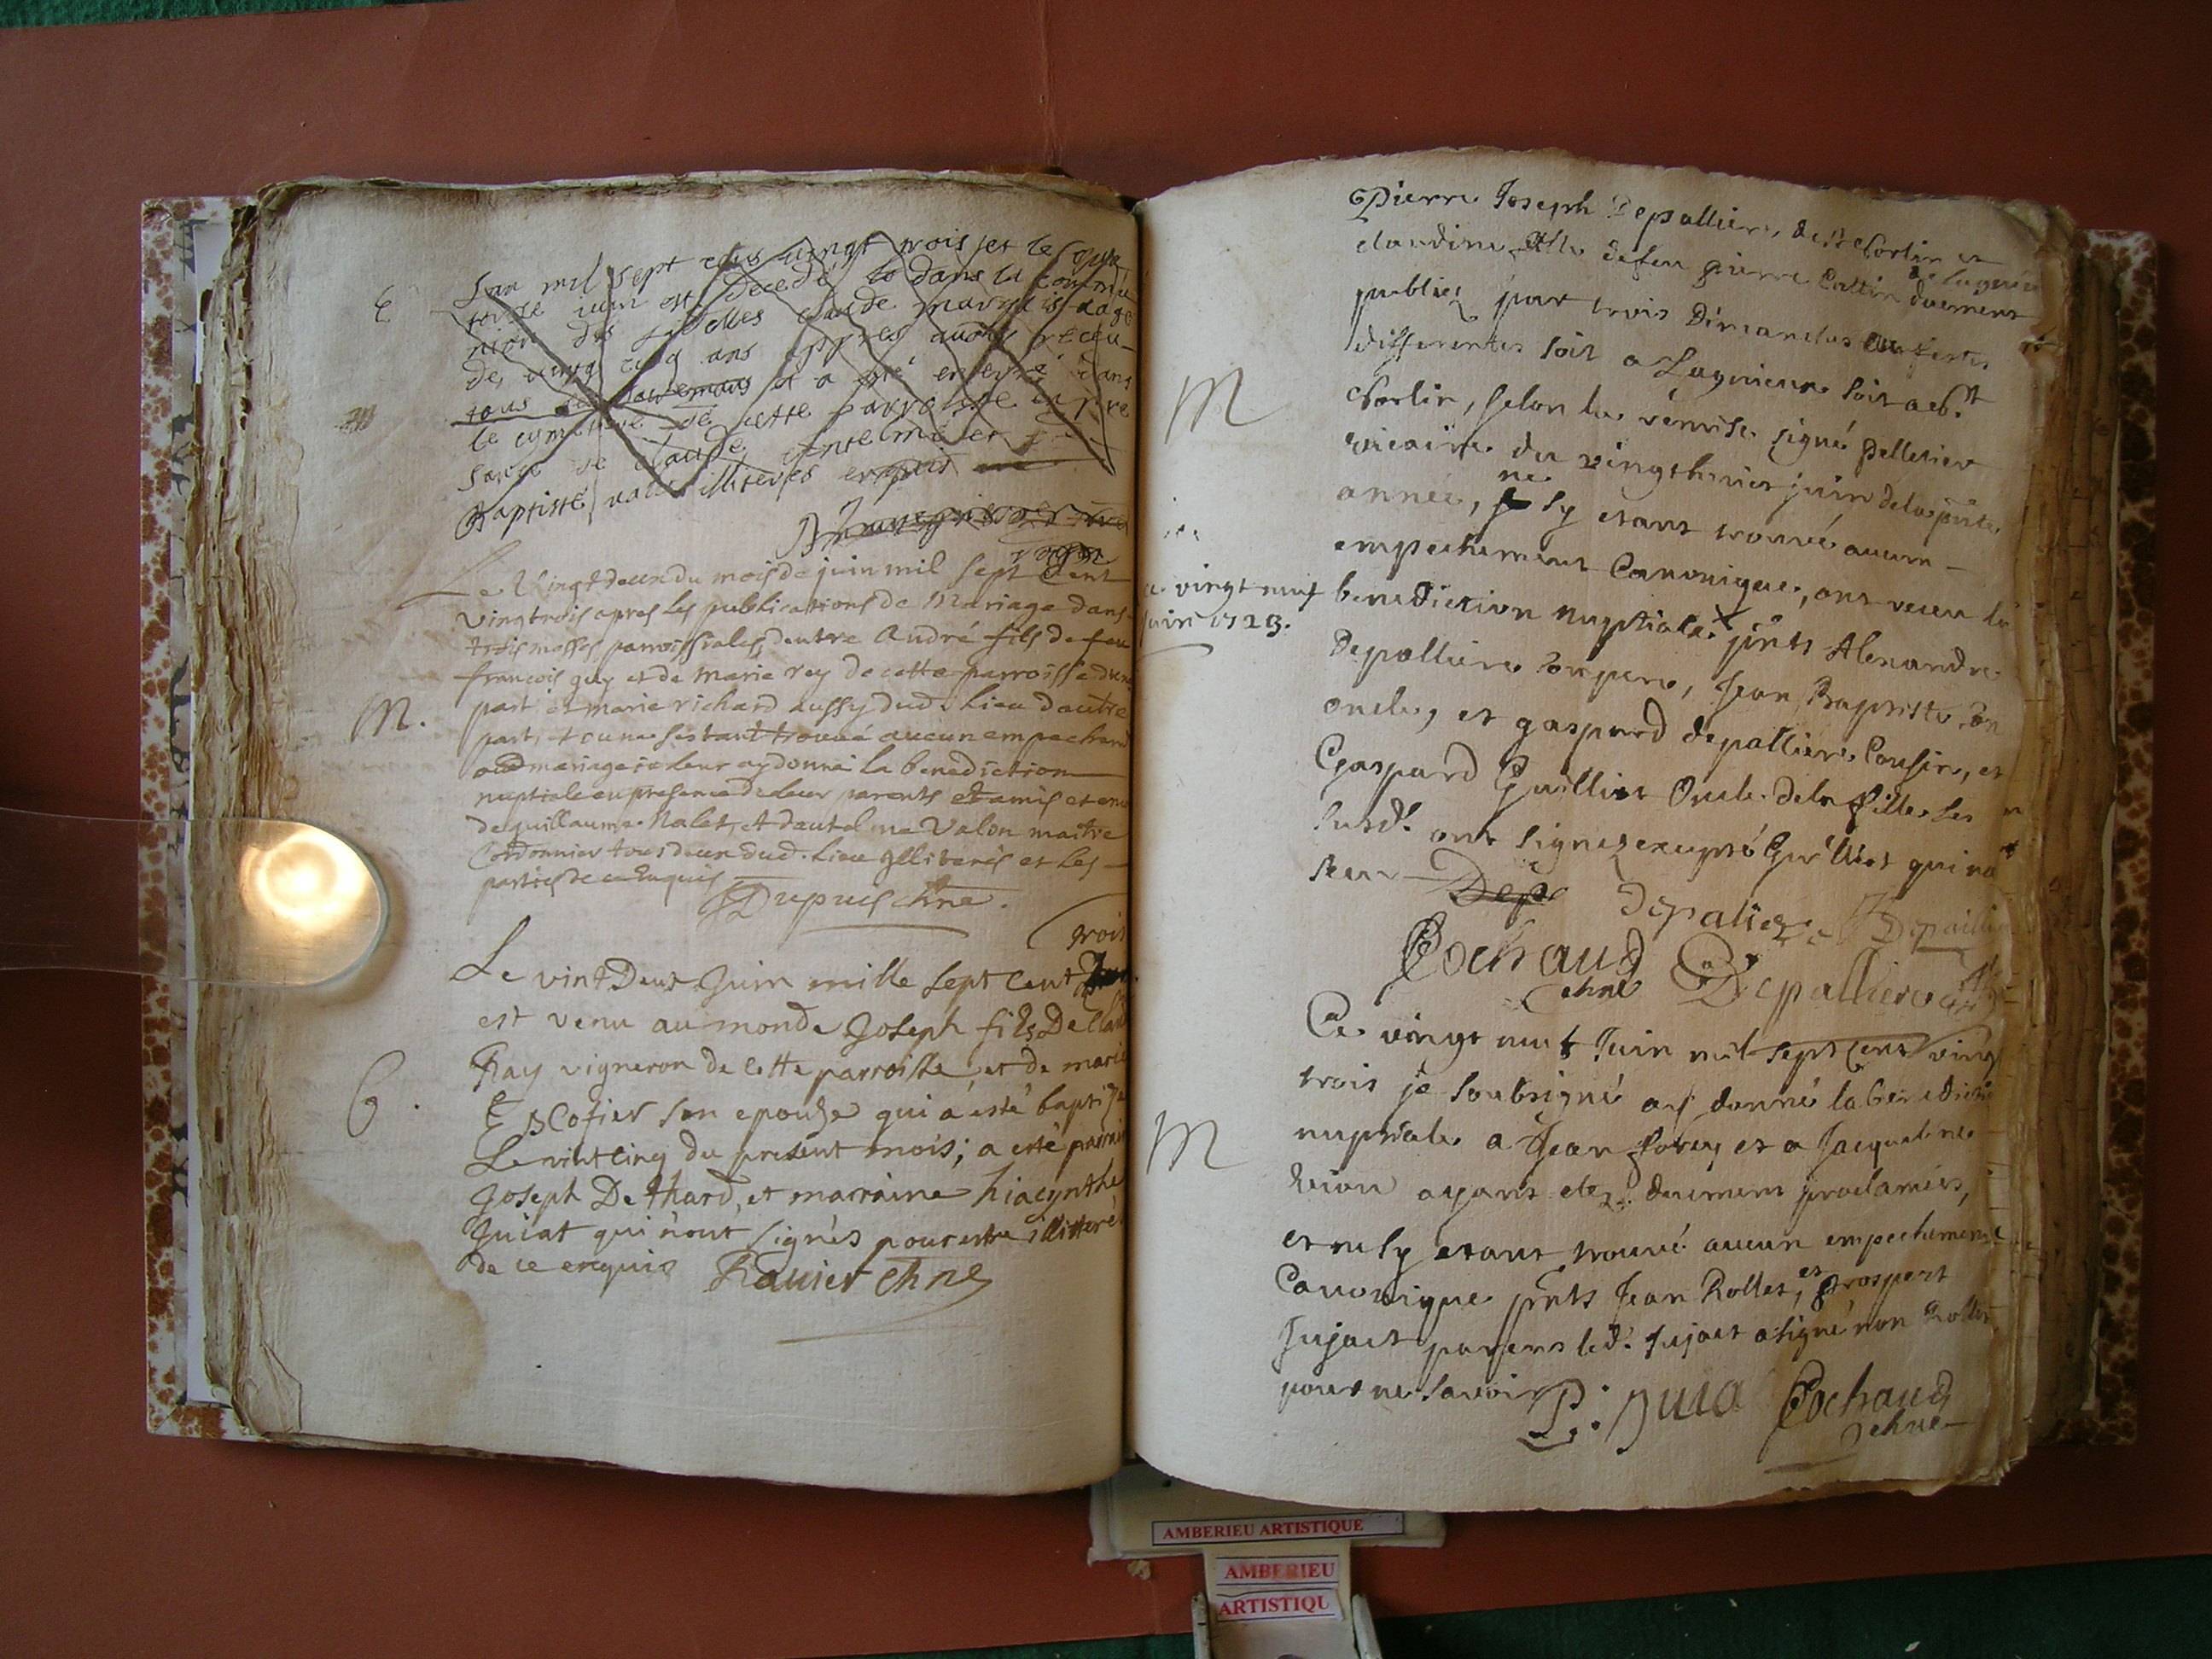 E
Lan mil sept cens vingt trois et le
juin est decedé dans la commu
nion des fidelles claude marmais
de vingt cinq ans appres avoir receu
tous sacremans et a été enterré dans
le cymetiere de cette parroisse en pre
sance de claude et
Baptiste illiteres enquis
Le Vingtdeux du mois de juin mil Sept Cent
vingtrois apres les publications de Mariage dans
trois messes parroissiales, entre André fils de feu
francois guy et de Marie rey de cette parroisse dune
M.
part et marie richard aussy dud. Lieu dautre
part, et ou ne sestant trouvé aucun empechem
aud mariage ie leur ay donné la benediction
nuptiale en presence de leur parents et amis et en
de guillaume Nalet, et dautelme Valon maitre
Cordonnier tous deux dud. Lieu Illiterés et les
parties de ce Enquis
Dupuis chne.
trois
Le vint Deux Juin mille sept cent
est venu au monde Joseph fils De Clau
Ray vigneron de cette parroisse, et de marie
B.
Escofier son epouse qui a esté baptisé
Le vint cinq du present mois; a esté parrain
Joseph Dethard, et marraine hiacynthe
Juiat qui nont signés pour estre illitterés
de ce enquis Ravier chne
Pierre Joseph Depalliere de st Sorlin et
claudine fille de feu pierre Cottin de Lagnieu duement
publiez par trois Dimanches ou festes
differentes soit a Lagnieu soit a st.
M
Sorlin, selon la remise signé Pelletier
vicaire du vingthuict juin de la pnte
ne
année, sy etant trouvé aucun
empechement Canonique, ont receu la
Ce vingt neuf
juin 1723.
benediction nuptiale. pnts Alexandre
Depalliere son pere, Jean Baptiste son
oncle, et gaspard depalliere Cousin, et
Gaspard Guilliot Oncle de la fille les
susd. ont signez excepté Guilliot qui na
sceu Depa Depalier Depaillie
Cochaud
chne Depalliere
Ce vingt neuf Juin mil sept cent vingt
trois je soubsigné ay donné la benediction
M
nuptiale a Jean forey et a Jacqueline
ayant etez duement proclamés,
et ne sy etant trouvé aucun empechement
Canonique pnts Jean Rollet, et prospert
Jujact parens led. Jujact a signé non Rollet
pour ne savoir P. Juia Cochaud
chne
AMBERIEU ARTISTIQUE
AMBERIEU
ARTISTIQU